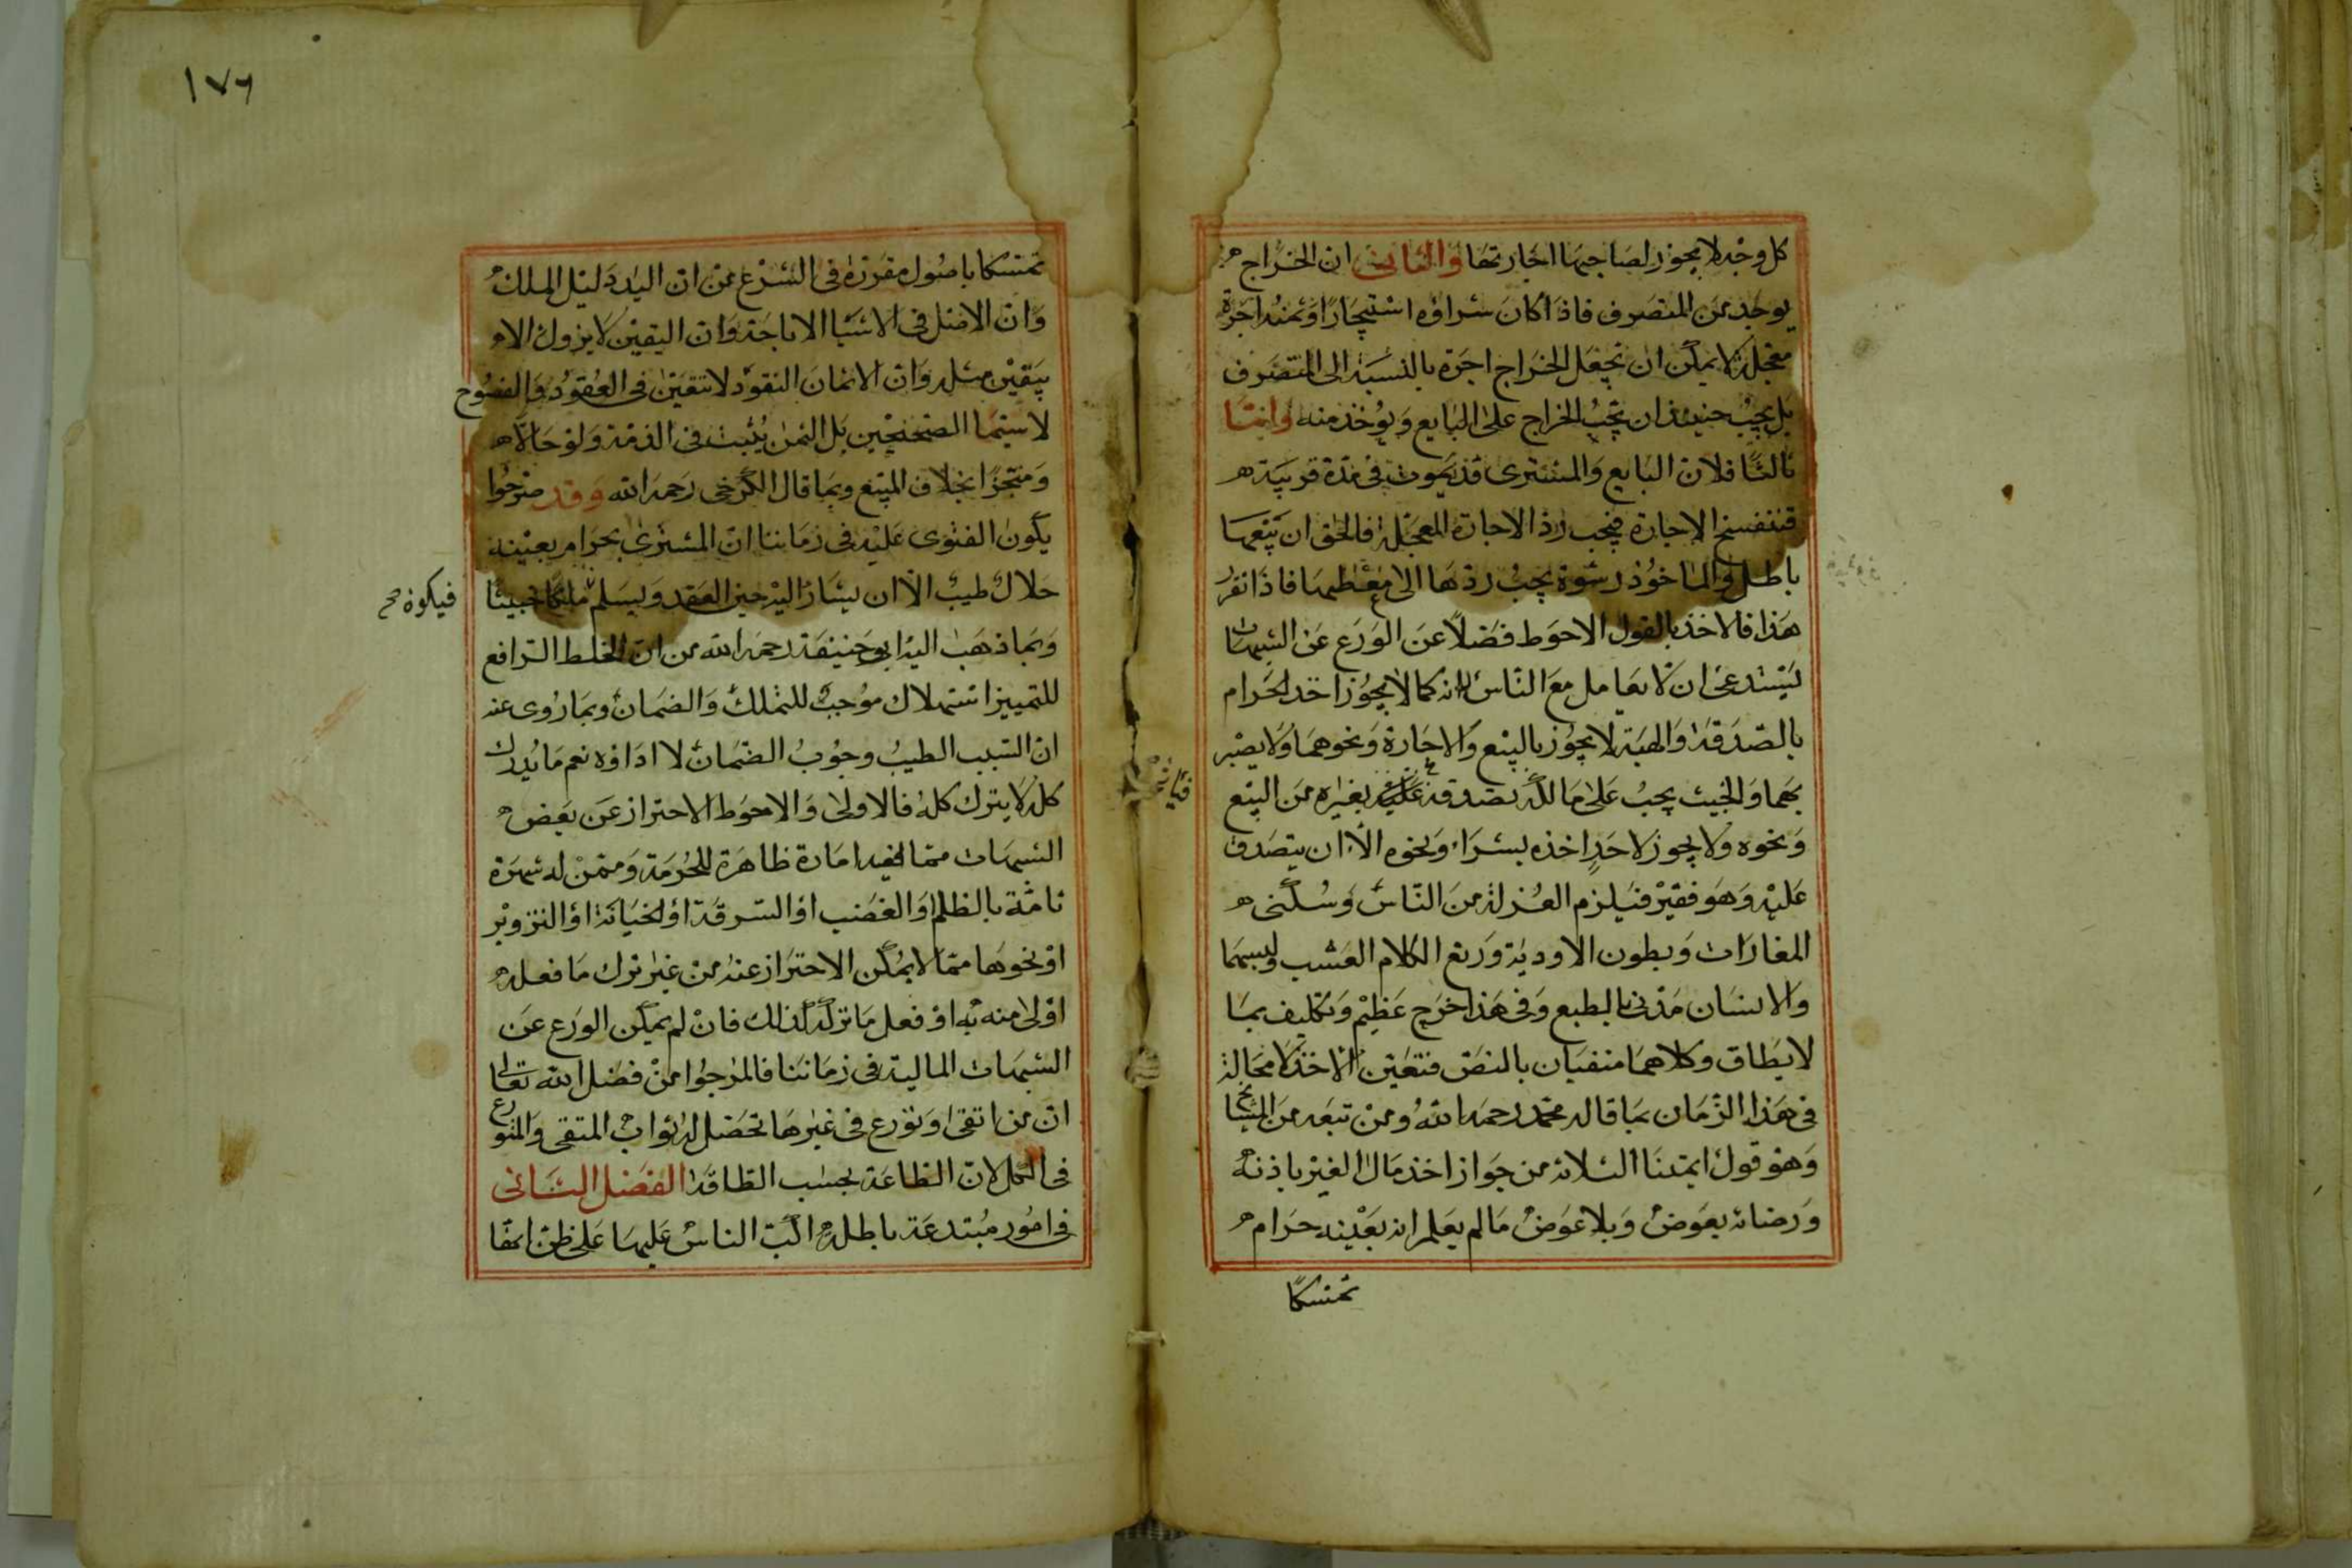 كل وجه لا يجوز لصاحبها اجارتها والثاني ان الخراج
يوجد من المتصرف فاذا كان شراؤه استيجارا وثمنه اجرة
معجلة لا يمكن ان تجعل الخراج اجرة بالنسبة الى المتصرف
بل يجب حينئذ ان يجب الخراج على البايع ويؤخذ منه وايضا
ثالثا فلان البايع والمشترى قد يموت فى مدة قريبة
فتنفسخ الاجارة فيجب رد الاجارة المعجلة فالحق ان بيعها
باطل والماخوذ رشوة يجب ردها الى معطيها فاذا تقرر
هذا فالاخذ بالقول الاحوط فضلا عن الورع عن الشبهات
يستدعى ان لا يعامل مع الناس لانه كما لا يجوز اخذ الحرام
بالصدقة والهبة لا يجوز بالبيع والاجارة ونحوهما ولا يصير
بهما والخبيث يجب على مالكه تصدقه عليه بغيره من البيع
ونحوه ولا يجوز لاحد اخذه بشراء ونحوه الا ان يتصدق
عليه وهو فقير فيلزم العزلة من الناس وسكنى
المغارات وبطون الاودية ورتع الكلام العشب ولبسهما
والانسان مدنى بالطبع وفى هذا حرج عظيم وتكليف بما
لا يطاق وكلاهما منفيان بالنص فتعين الاخذ لا محالة
فى هذا الزمان بما قاله محمد رحمه الله ومن تبعه من المشايخ
وهو قول ايمتنا الثلاثة من جواز اخذ مال الغير باذنه
ورضائه بعوض وبلا عوض ما لم يعلم انه بعينه حرام
تمسكا
١٧٦
تمسكا باصول مقررة فى الشرع من ان اليد دليل الملك
وان الاصل فى الاشيا الاباحة وان اليقين لا يزول الا
بيقين مثله وان الاثمان النقود لا تتعين فى العقود والفسوخ
لاسيما الصحيحين بل الثمن يثبت فى الذمة ولو حالا
ومنجزا بخلاف المبيع وبما قال الكرخى رحمه الله وقد صرحوا
يكون الفتوى عليه فى زماننا ان المشترى بحرام بعينه
حلال طيب الا ان يشار اليه حين العقد ويسلم ملكا خبيثا
فيكون صح
وبما ذهب اليه ابو حنيفة رحمه الله من ان الخلط الرافع
للتمييز استهلاك موجب للتملك والضمان وبما روى عنه
ان السبب الطيب وجوب الضمان لا اداؤه نعم ما يدرك
كله لا يترك كله فالاولى والاحوط الاحتراز عن بعض
الشبهات مما فيه امارة ظاهرة للحرمة وممن له شهرة
تامة بالظلم او الغصب او السرقة او الخيانة او التزوير
او نحوها مما لا يمكن الاحتراز عنه من غير ترك ما فعله
اولى منه به او فعل ما تركه كذلك فان لم يمكن الورع عن
الشبهات المالية فى زماننا فالمرجوا من فضل الله تعالى
ان من اتقى وتورع فى غيرها تحصل له ثواب المتقى والمتورع
فى الكل لان الطاعة بحسب الطاقة الفصل الثانى
فى امور مبتدعة باطلة اكب الناس عليها على ظن انها